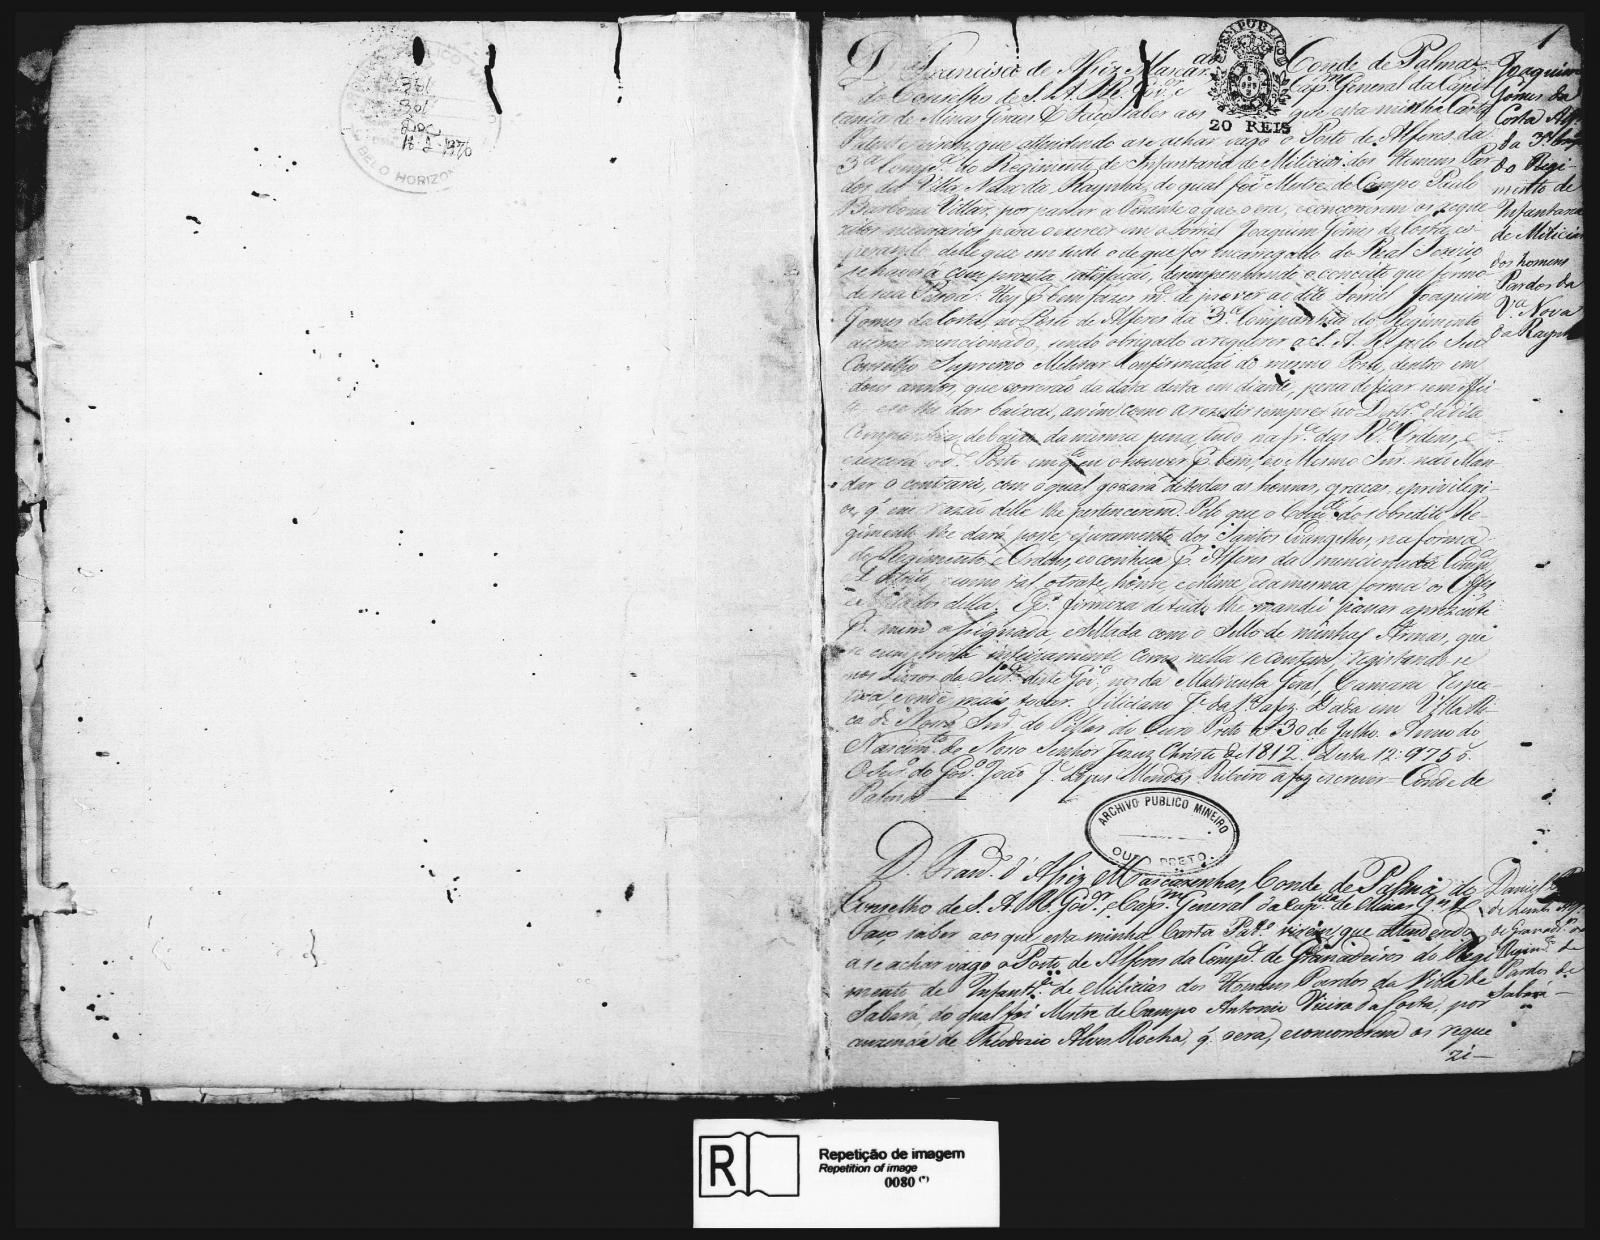 PUBLICO
BELO HORIZON
301
301
Doc
1
D Francisco de Assiz Mascar Conde de Palma
do Conselho de S. A. R. Cap.m General da Capi
tania de Minas Geraes & Faço saber aos que esta minha Carta
20 REIS
Patente virem, que attendendo a se achar vago o Posto de Alferes da
3ª Comp.ª do Regimento de Infantaria de Milicias dos Homens Par
dos da Villa Nova da Raynha, do qual foi Mestre de Campo Paulo
Barbosa Villar, por passar a Tenente o que o era, e concorrerem os reque
zitos necessarios para o exercer em o Forriel Joaquim Gomes da Costa, es
perando delle que em tudo o de que for encarregado do Real Serviço
se haverá com prompta satisfação, desempenhando o conceito que formo
de sua Pessoa: Hey P. bem fazer m.ce de prover ao dito Forriel Joaquim
Gomes da Costa, no Posto de Alferes da 3ª Companhia do Regimento
acima mencionado, sendo obrigado a requerer a S. A. R. pelo Seu
Conselho Supremo Militar Confirmação do mesmo Posto, dentro em
dous annos, que correráõ da data desta em diante, pena de ficar sem effei
to e se lhe dar baixa, assim como a rezidir sempre no Destr.º da dita
Companhia, debaixo da mesma pena, tudo na fr.ª das R.es Ordens, e
exercerá o d.º Posto em q.to eu o houver P. bem, e o Mesmo Snr. não Man
dar o contrario, com o qual gozará de todas as honras, graças, e privilegi
os, q' em razão delle lhe pertencerem. Pelo que o Com.te do sobredito Re
gimento lhe dará posse, e juramento dos Santos Evangelhos, na forma
do Regimento, e Ordens, e o conheça P. Alferes da mencionada Comp.ª
e como tal o trate, honre e estime, e da mesma forma os Offes
e Soldados della. E P. firmeza de tudo lhe mandei passar a prezente
P. mim assignada, e sellada com o Sello de minhas Armas, que
se cumprirá inteiramente como nella se contem, registando-se
nos Livros da Secr.ª deste Gov.º, nos da Matricula Geral, Camara respec
tiva e onde mais tocar. Feliciano J.e da a fez. Dada em Villa Ri
ca de Nossa Snr.ª do Pillar do Ouro Preto a 30 de Julho. Anno do
Nascim.to de Nosso Senhor Jezus Christo de 1812.
O Secr.º do Gov.º João J.e Lopes Mendes Ribeiro a fez escrever Conde de
Palma
Joaquim
Gomes da
Costa Alf.
da 3ª
do Regi-
mento de
Infantaria
de Milicias
dos homens
Pardos da
V.ª Nova
da Raynha
ARCHIVO PUBLICO MINEIRO
OURO PRETO
D. Fran.co d' Assiz Mascarenhas, Conde de Palma, do
Conselho de S. A. R. Gov.or, e Cap.m General da Cap.nia de Minas G.es &
Faço saber aos que esta minha Carta Pat.e virem, que attendendo
a se achar vago o Posto de Alferes da Comp.ª de Granadeiros do Regi
mento de Infantr.ª de Milicias dos Homens Pardos da Villa de
Sabará, do qual foi Mestre de Campo Antonio Vieira da Costa, por
auzencia de Theodozio Alves Rocha, q' o era, e concorrerem os reque
zi-
Daniel
de Granad.os
Regim.to de
Pardos de
Sabará
R
Repetição de imagem
Repetition of image
0080 (*)